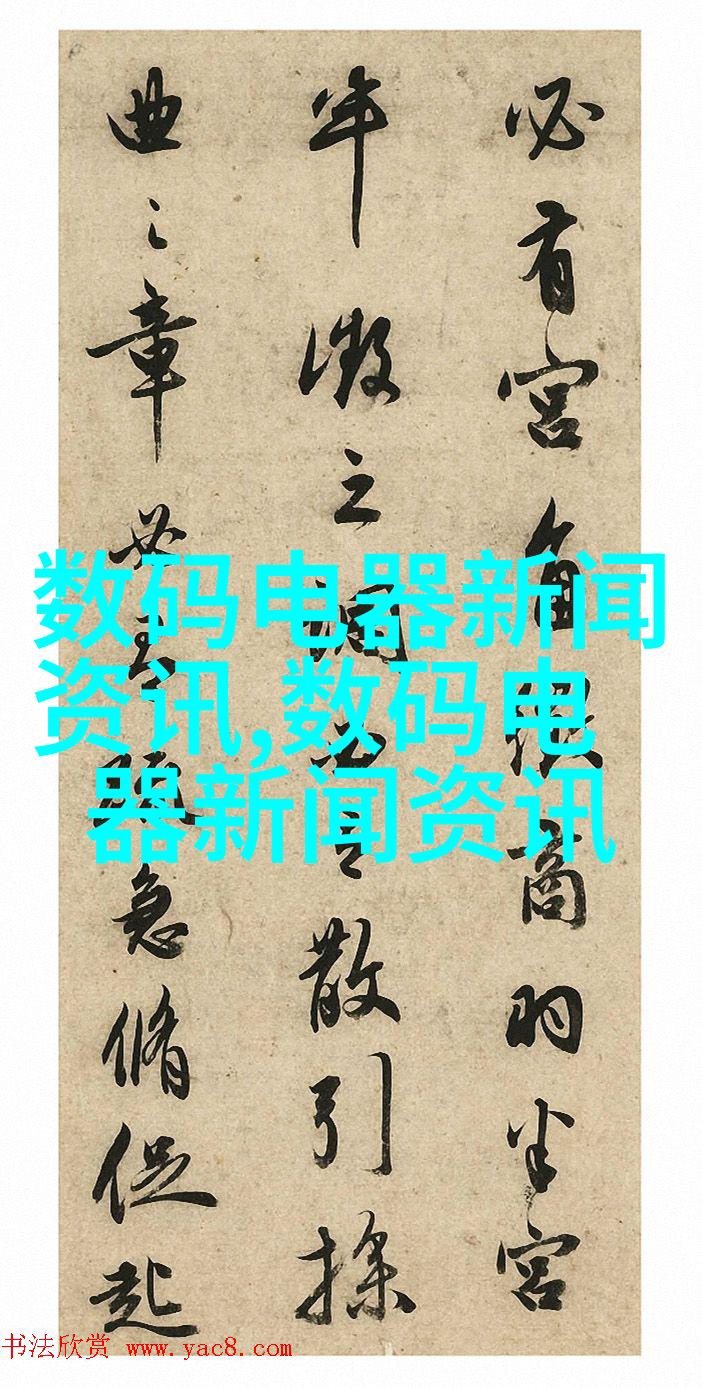 必有宫角徵商羽半宫
半徵之散引操
曲之章急脩促起
数码电器新闻
资讯,数码电
器新闻资讯
书法欣赏 www.yac8.com